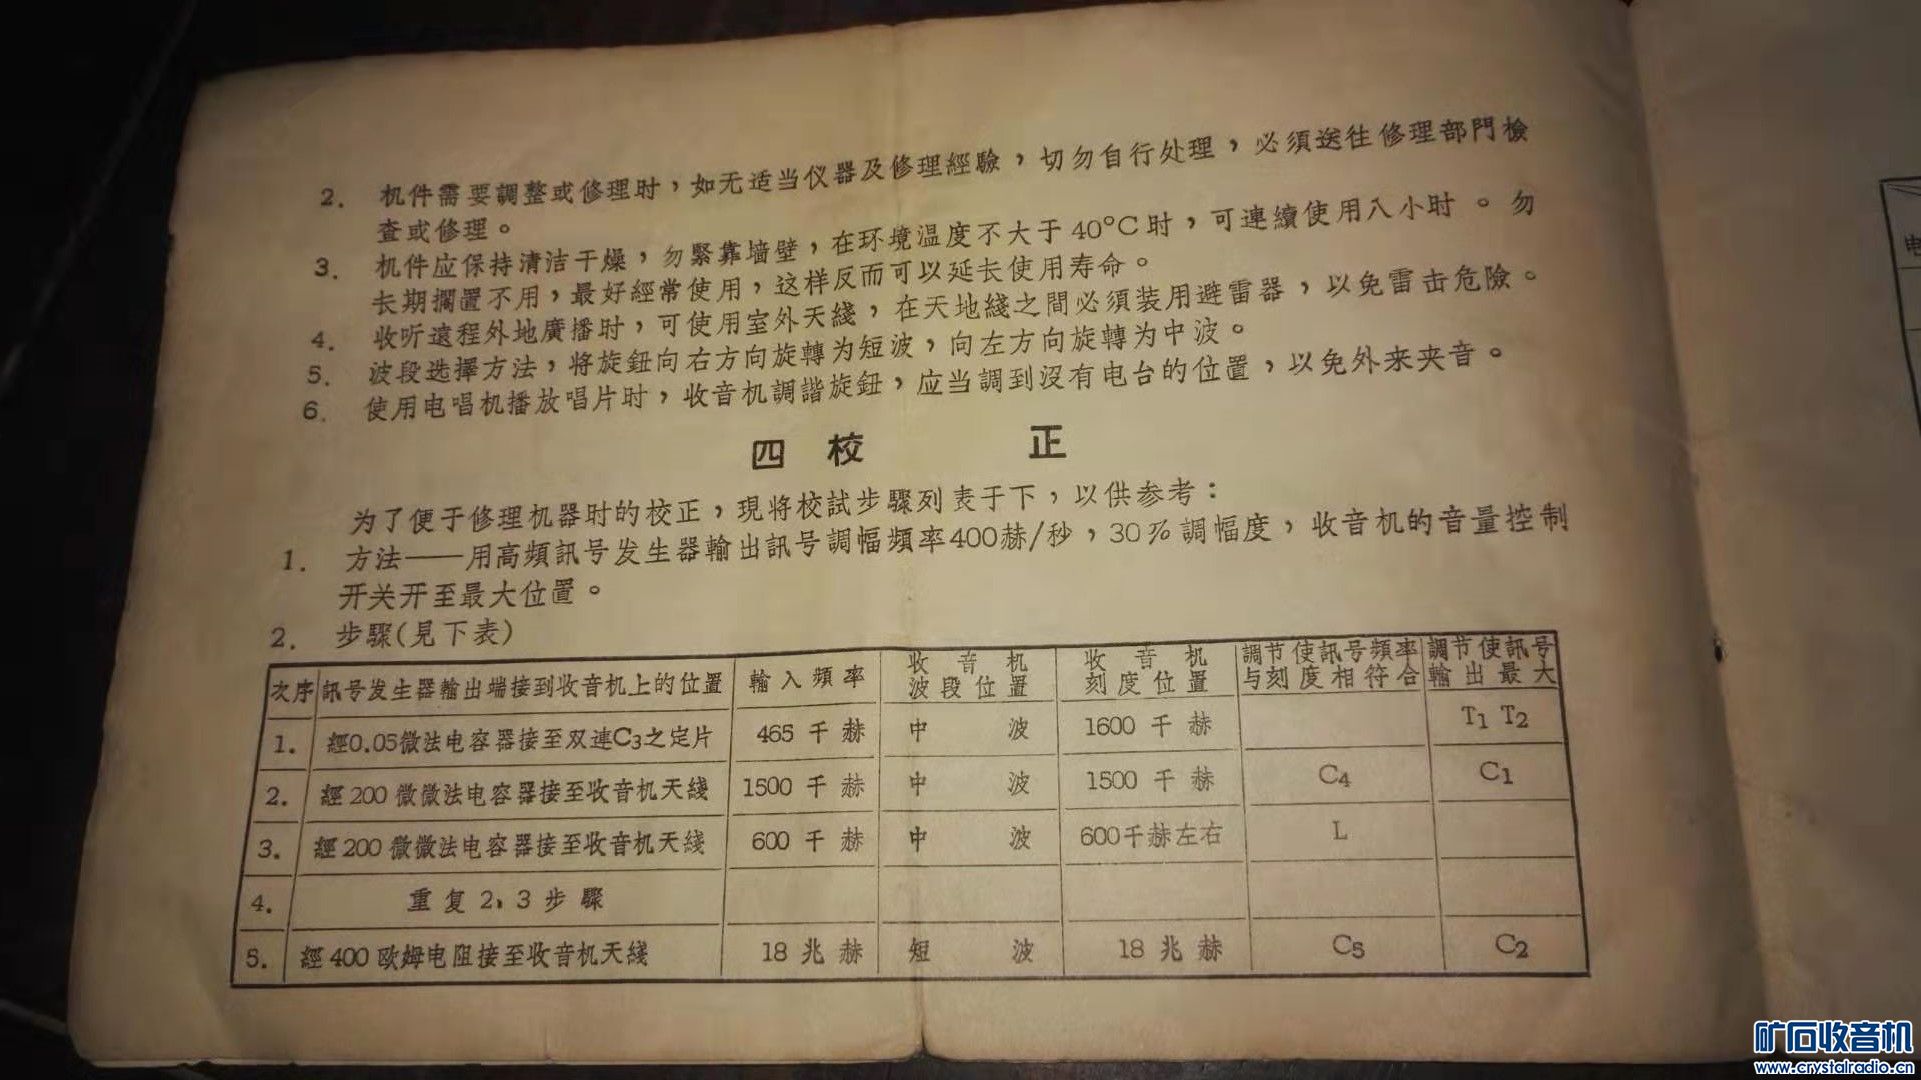 2. 机件需要調整或修理时，如无适当仪器及修理經驗，切勿自行处理，必須送往修理部門檢
查或修理。
3. 机件应保持清洁干燥，勿緊靠墙壁，在环境温度不大于40°C时，可連續使用八小时。勿
长期擱置不用，最好經常使用，这样反而可以延长使用寿命。
4. 收听遠程外地廣播时，可使用室外天綫，在天地綫之間必須装用避雷器，以免雷击危險。
5. 波段选擇方法，将旋鈕向右方向旋轉为短波，向左方向旋轉为中波。
6. 使用电唱机播放唱片时，收音机調諧旋鈕，应当調到沒有电台的位置，以免外来夹音。
四 校 正
为了便于修理机器时的校正，現将校試步驟列表于下，以供参考：
1. 方法——用高頻訊号发生器輸出訊号調幅頻率400赫/秒，30%調幅度，收音机的音量控制
开关开至最大位置。
2. 步驟(見下表)
次序 訊号发生器輸出端接到收音机上的位置 輸入頻率 收音机波段位置 收音机刻度位置 調节使訊号頻率与刻度相符合 調节使訊号輸出最大
1. 經0.05微法电容器接至双連C3之定片 465千赫 中波 1600千赫 T1 T2
2. 經200微微法电容器接至收音机天綫 1500千赫 中波 1500千赫 C4 C1
3. 經200微微法电容器接至收音机天綫 600千赫 中波 600千赫左右 L
4. 重复2、3步驟
5. 經400欧姆电阻接至收音机天綫 18兆赫 短波 18兆赫 C5 C2
电
矿石收音机
www.crystalradio.cn